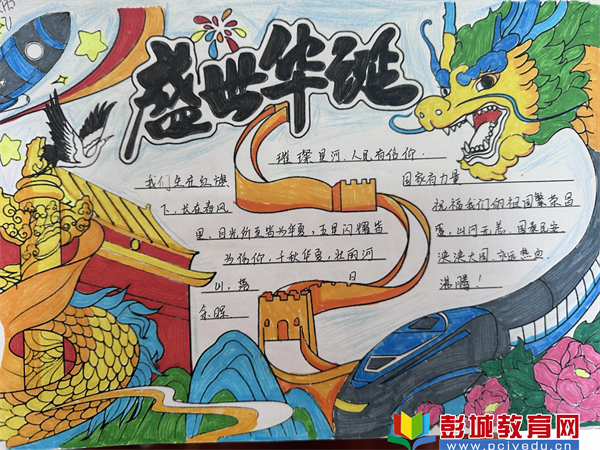 盛世华诞
璀璨星河，人民有信仰．
国家有力量
我们生在红旗
下，长在春风
里，目光所至皆为华夏，五星闪耀皆
为信仰，千秋华夏，壮丽河
山，落日
余晖
祝福我们的祖国繁荣昌
盛，山河无恙，国泰民安
泱泱大国，热血
沸腾！
彭城教育网
www.pcivedu.cn